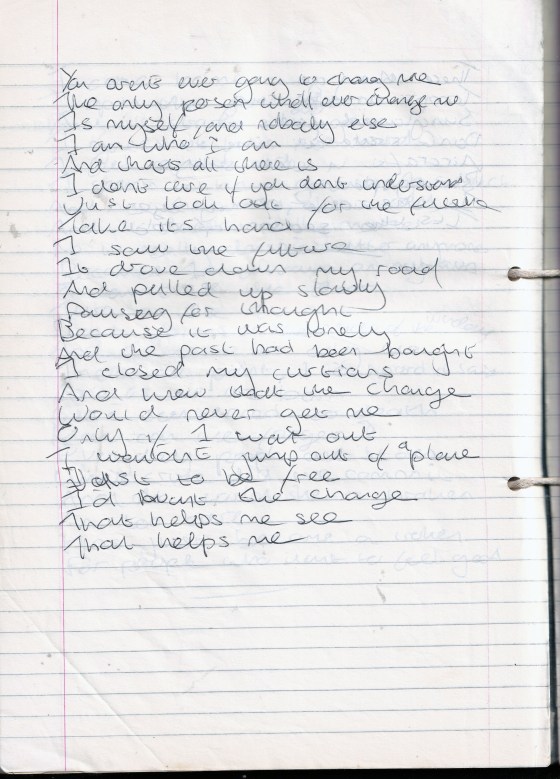 You arent ever going to change me
The only person wholl ever change me
Is myself, and nobody else
I am who I am
And thats all there is
I dont care if you dont understand
Just look out for the future
Take its hand
I saw the future
It drove down my road
And pulled up slowly
Pausing for thought
Because it was lonely
And the past had been bought
I closed my curtians
And knew that the change
Would never get me
Only if I went out
I wouldnt jump out of a plane
Just to be free
I'd the change
That helps me see
That helps me